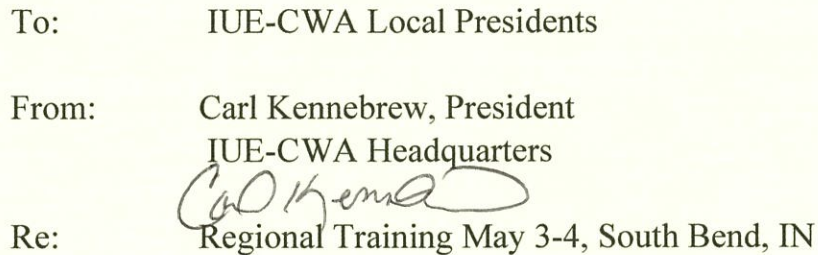 To: IUE-CWA Local Presidents
From: Carl Kennebrew, President
IUE-CWA Headquarters
Re: Regional Training May 3-4, South Bend, IN